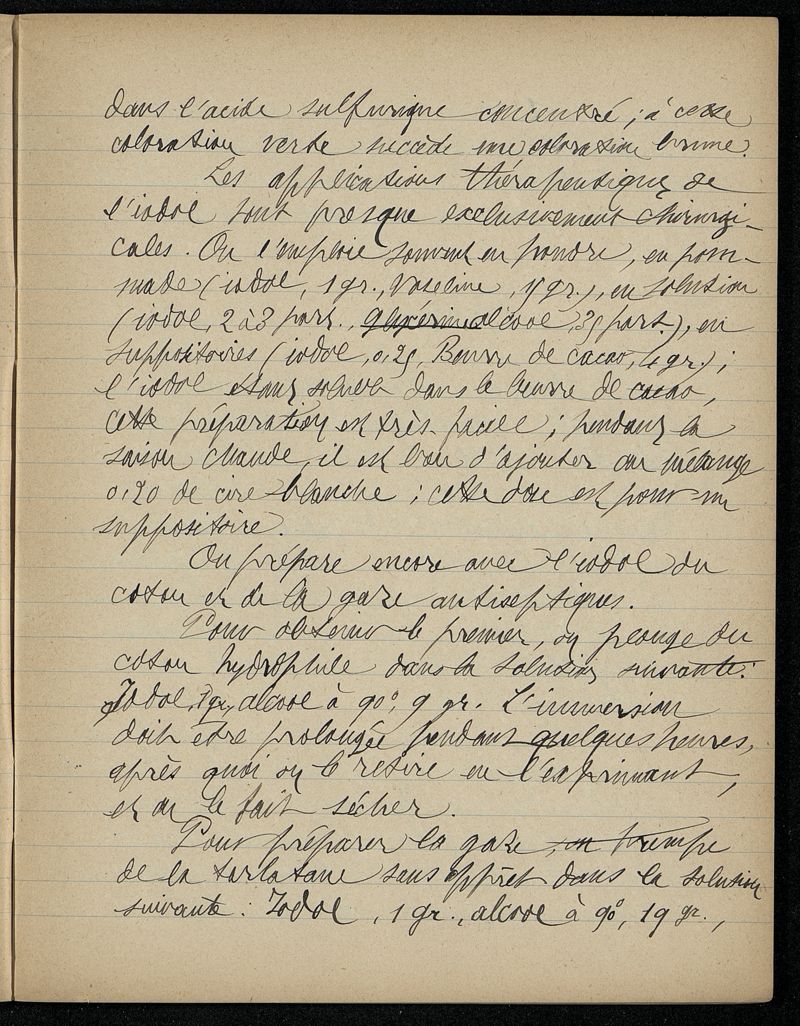 dans l'acide sulfurique concentré ; à cette
coloration verte succède une coloration brune.
Les applications thérapeutiques de
l'iodol sont presque exclusivement chirurgi-
cales. On l'emploie souvent en poudre, en pom-
made (iodol, 1 gr., Vaseline, gr.), en solution
(iodol, 2 à 3 part., glycérine alcool, 35 part.), en
suppositoires (iodol, 0,25, Beurre de cacao, 4 gr.) ;
l'iodol étant soluble dans le beurre de cacao,
cette préparation est très facile ; pendant la
saison chaude, il est bon d'ajouter au mélange
0,20 de cire blanche ; cette dose est pour un
suppositoire.
On prépare encore avec l'iodol du
coton et de la gaze antiseptiques.
Pour obtenir le premier, on plonge du
coton hydrophile dans la solution suivante :
Iodol, 1 gr., alcool à 90°, 9 gr. L'immersion
doit être prolongée pendant quelques heures,
après quoi on le retire en l'exprimant,
et on le fait sécher.
Pour préparer la gaze, on trempe
de la tarlatane sans apprêt dans la solution
suivante : Iodol, 1 gr., alcool à 90°, 19 gr.,